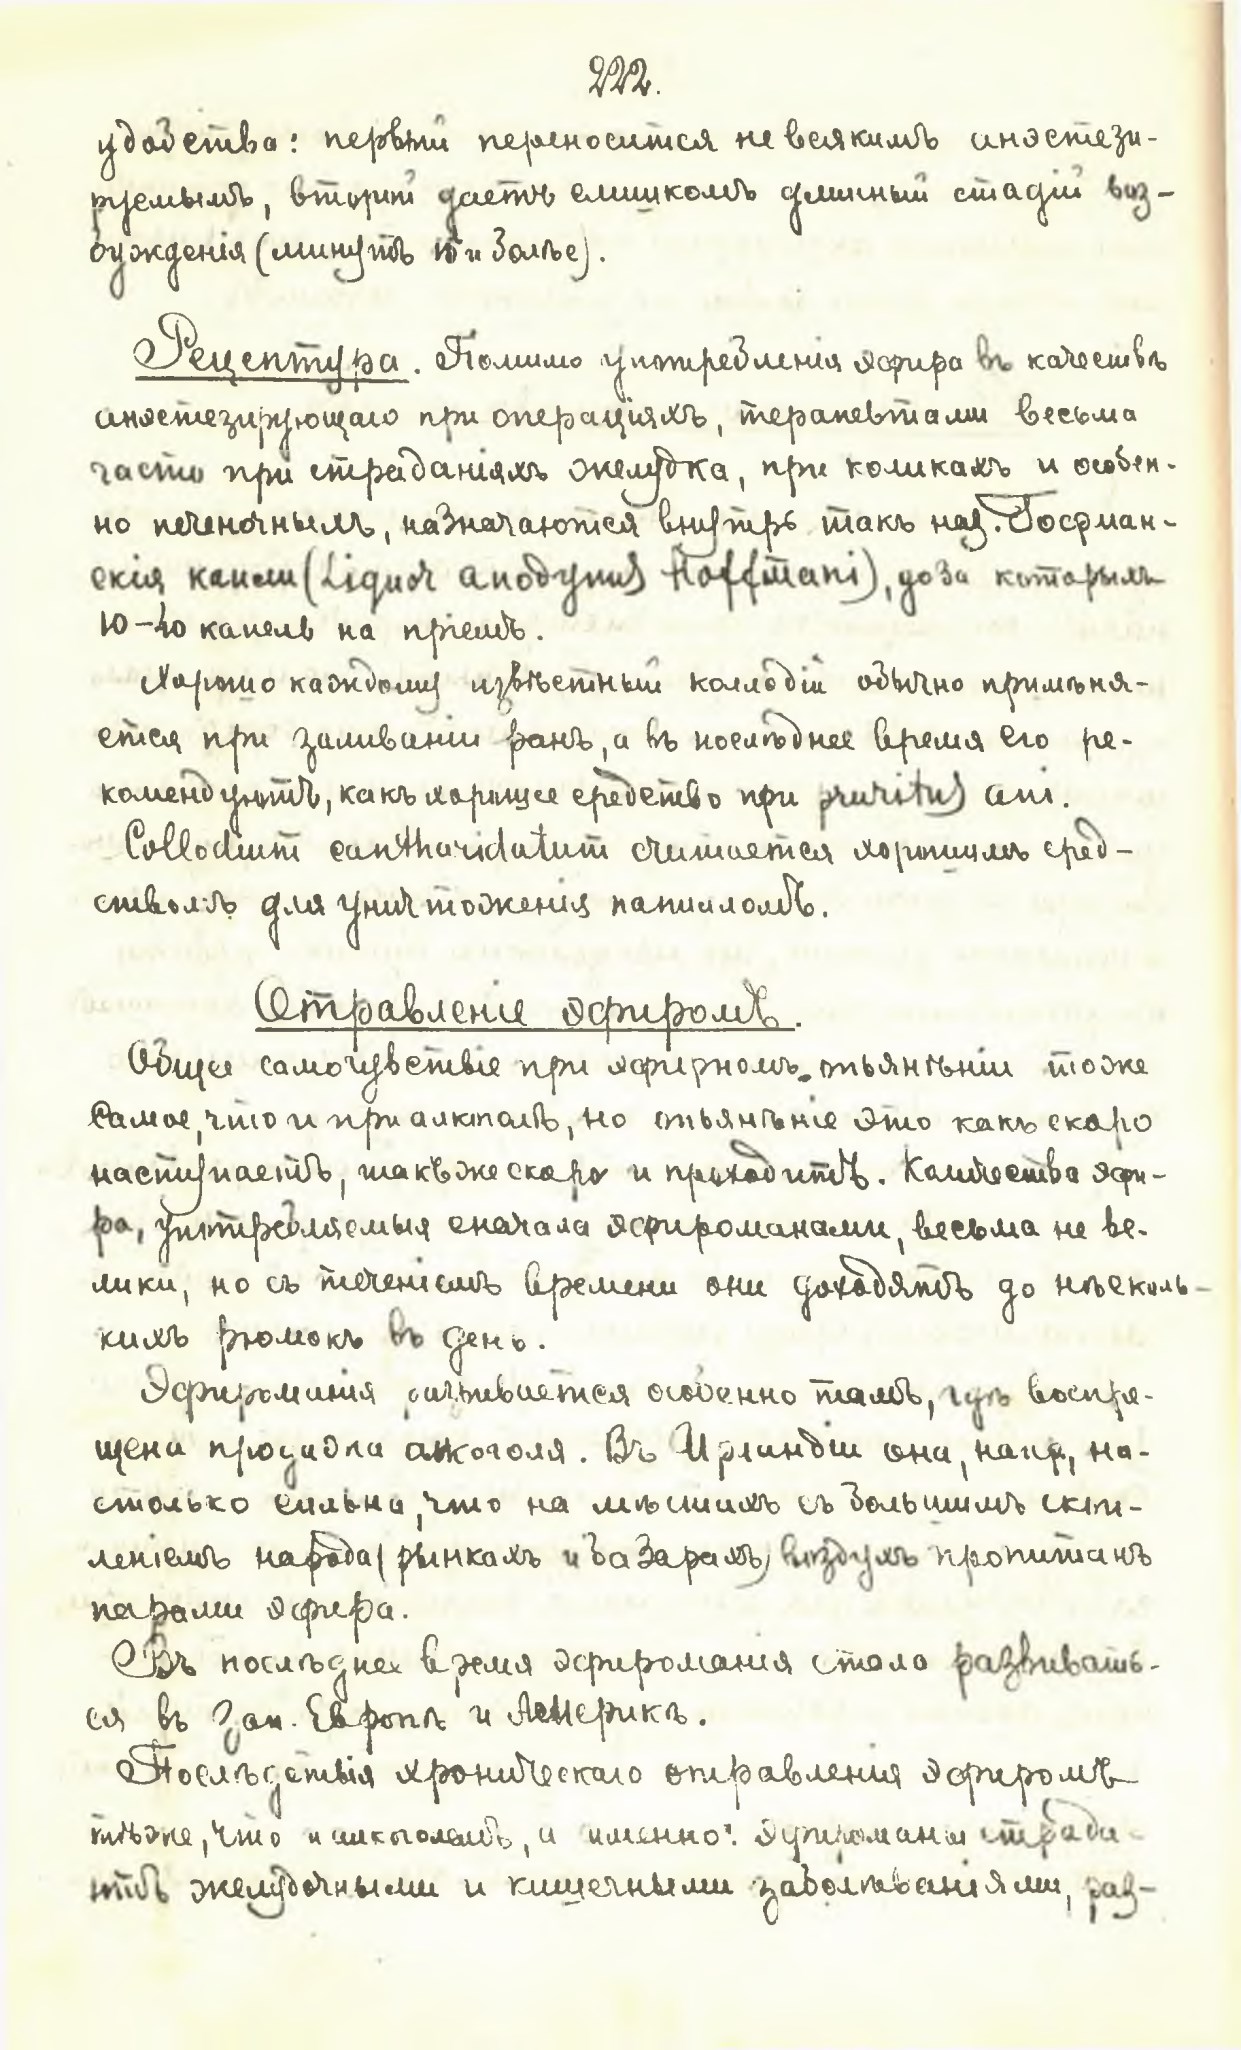 222.
удобства: первый переносится не всякимъ анэстези-
руемымъ, второй даетъ слишкомъ длинный стадій воз-
бужденія (минутъ 15 и болѣе).
Рецептура. Помимо употребленія эфира въ качествѣ
анэстезирующаго при операціяхъ, терапевтами весьма
часто при страданіяхъ желудка, при коликахъ и особен-
но печеночныхъ, назначаются внутрь такъ наз. Гофман-
скія капли (Liquor anodynus Hoffmani), доза которыхъ
10-40 капель на пріемъ.
Хорошо каждому извѣстный коллодій обычно примѣня-
ется при заливаніи ранъ, а въ послѣднее время его ре-
комендуютъ, какъ хорошее средство при pruritus ani.
Collodium cantharidatum считается хорошимъ сред-
ствомъ для уничтоженія папилломъ.
Отравленіе эфиромъ.
Общее самочувствіе при эфирномъ опьянѣніи тоже
самое, что и при алкоголѣ, но опьянѣніе это какъ скоро
наступаетъ, такъ же скоро и проходитъ. Количества эфи-
ра, употребляемыя сначала эфироманами, весьма не ве-
лики, но съ теченіемъ времени они доходятъ до нѣсколь-
кихъ рюмокъ въ день.
Эфироманія развивается особенно тамъ, гдѣ воспре-
щена продажа алкоголя. Въ Ирландіи она, напр, на-
столько сильна, что на мѣстахъ съ большимъ скоп-
леніемъ народа (рынкахъ и базарахъ) воздухъ пропитанъ
парами эфира.
Въ послѣднее время эфироманія стала развивать-
ся въ Зап. Европѣ и Америкѣ.
Послѣдствія хроническаго отравленія эфиромъ
тѣже, что и алкоголемъ, а именно: эфироманы страда-
ютъ желудочными и кишечными заболѣваніями, раз-